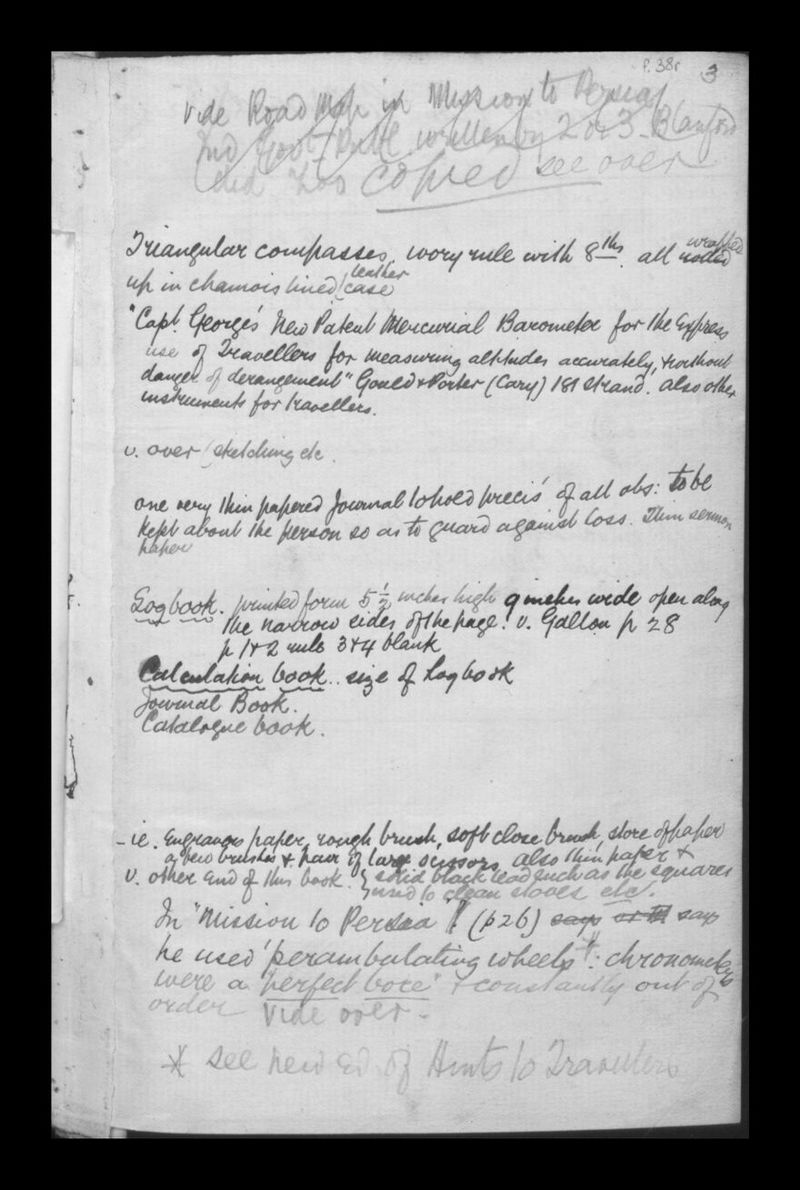 P. 38r 3
Vide Road Map in Mission to Persia
Ind Govt Publ. written on 2 or 3. Blanford
did too copied see over
Triangular compasses, ivory rule with 8ths. all rolled wrapped
up in chamois lined leather case
"Capt George's New Patent Mercurial Barometer for the Express
use of Travellers for measuring altitudes accurately, & without
danger of derangement" Gould & Porter (Cary) 181 Strand. also other
instruments for travellers.
v. over sketching etc.
one very thin papered Journal to hold precis of all obs: to be
kept about the person so as to guard against loss. Thin sermon
paper
Log book. printed form 5 1/2 inches high 9 inches wide open along
the narrow sides of the page. v. Galton p 28
p 1 & 2 rule 3 & 4 blank
Calculation book.. size of Logbook
Journal Book.
Catalogue book.
- ie. Engravers paper, rough brush, soft close brush, store of paper
a few brushes & pair of large scissors, also thin paper &
v. other end of this book. { solid black lead such as the squares
used to clean stoves etc.
In "Mission to Persia" (p26) says
he used 'perambulating wheels': chronometers
were a "perfect bore" & constantly out of
order Vide over -
* see new ed. of Hints to Travellers